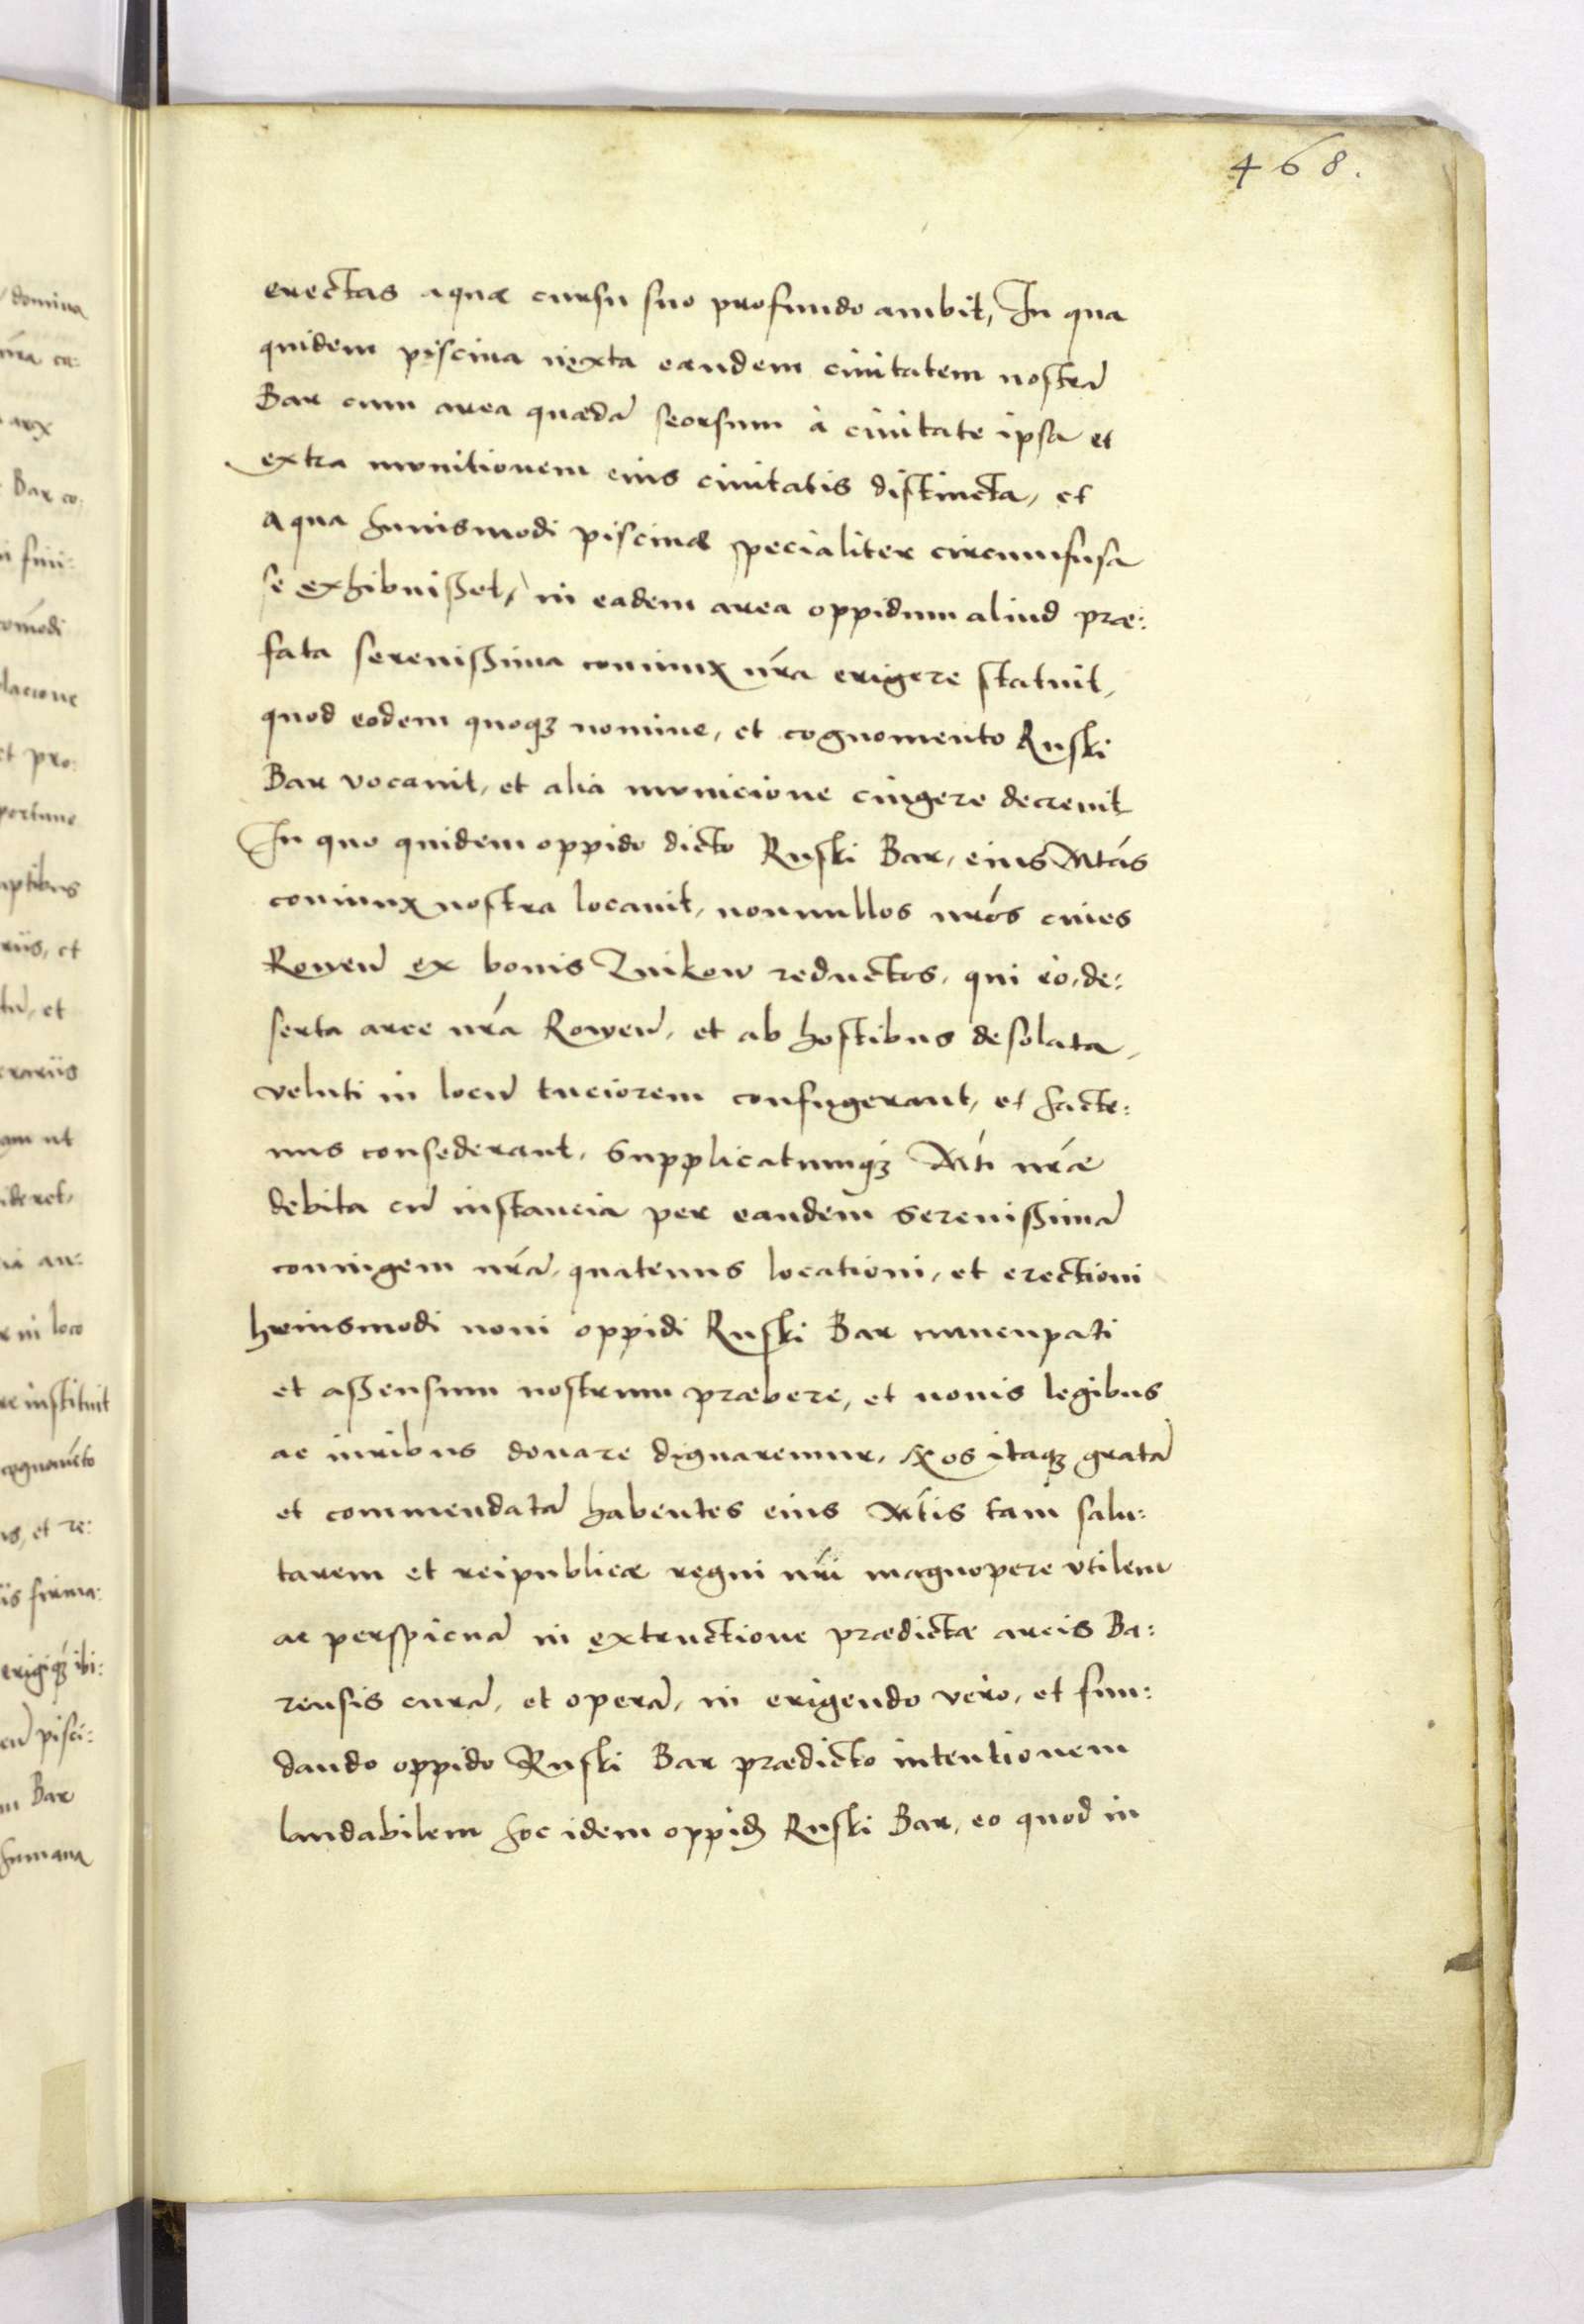 468.
erectas aquæ cursu suo profundo ambit, In qua
quidem piscina iuxta eandem ciuitatem nostrã
Bar cum area quædã seorsum à ciuitate ipsa et
extra munitionem eius ciuitatis distincta, et
aqua huiusmodi piscinæ specialiter circumfusa
se exhibuisset, in eadem area oppidum aliud præ:
fata serenissima coniunx nra erigere statuit,
quod eodem quoqȝ nomine, et cognomento Ruski
Bar vocauit, et alia municione cingere decreuit
In quo quidem oppido dicto Ruski Bar, eius Mtas
coniunx nostra locauit, nonnullos nros ciues
Rowen̄ ex bonis Zinkow reductos, qui eo, de:
serta arce nra Rowen̄, et ab hostibus desolata,
veluti in locũ tuciorem confugerant, et hacte:
nus consederant, Supplicatumqȝ Mti nræ
debita cũ instancia per eandem Serenissimã
coniugem nrã, quatenus locationi, et erectioni
huiusmodi noui oppidi Ruski Bar nuncupati
et assensum nostrum præbere, et nouis legibus
ac iuribus donare dignaremur, Nos itaqȝ gratã
et commendatã habentes eius Mtis tam salu:
tarem et reipublicæ regni nri magnopere vtilem
ac perspicuã in extructione prædictæ arcis Ba:
rensis curã, et operã, in erigendo vero, et fun:
dando oppido Ruski Bar prædicto intentionem
laudabilem hoc idem oppidȝ Ruski Bar, eo quod in
domina
arx
Bar co:
comodi
et pro:
riis, et
am ut
in loco
instituit
et re:
is firma:
pisci:
m Bar
humana